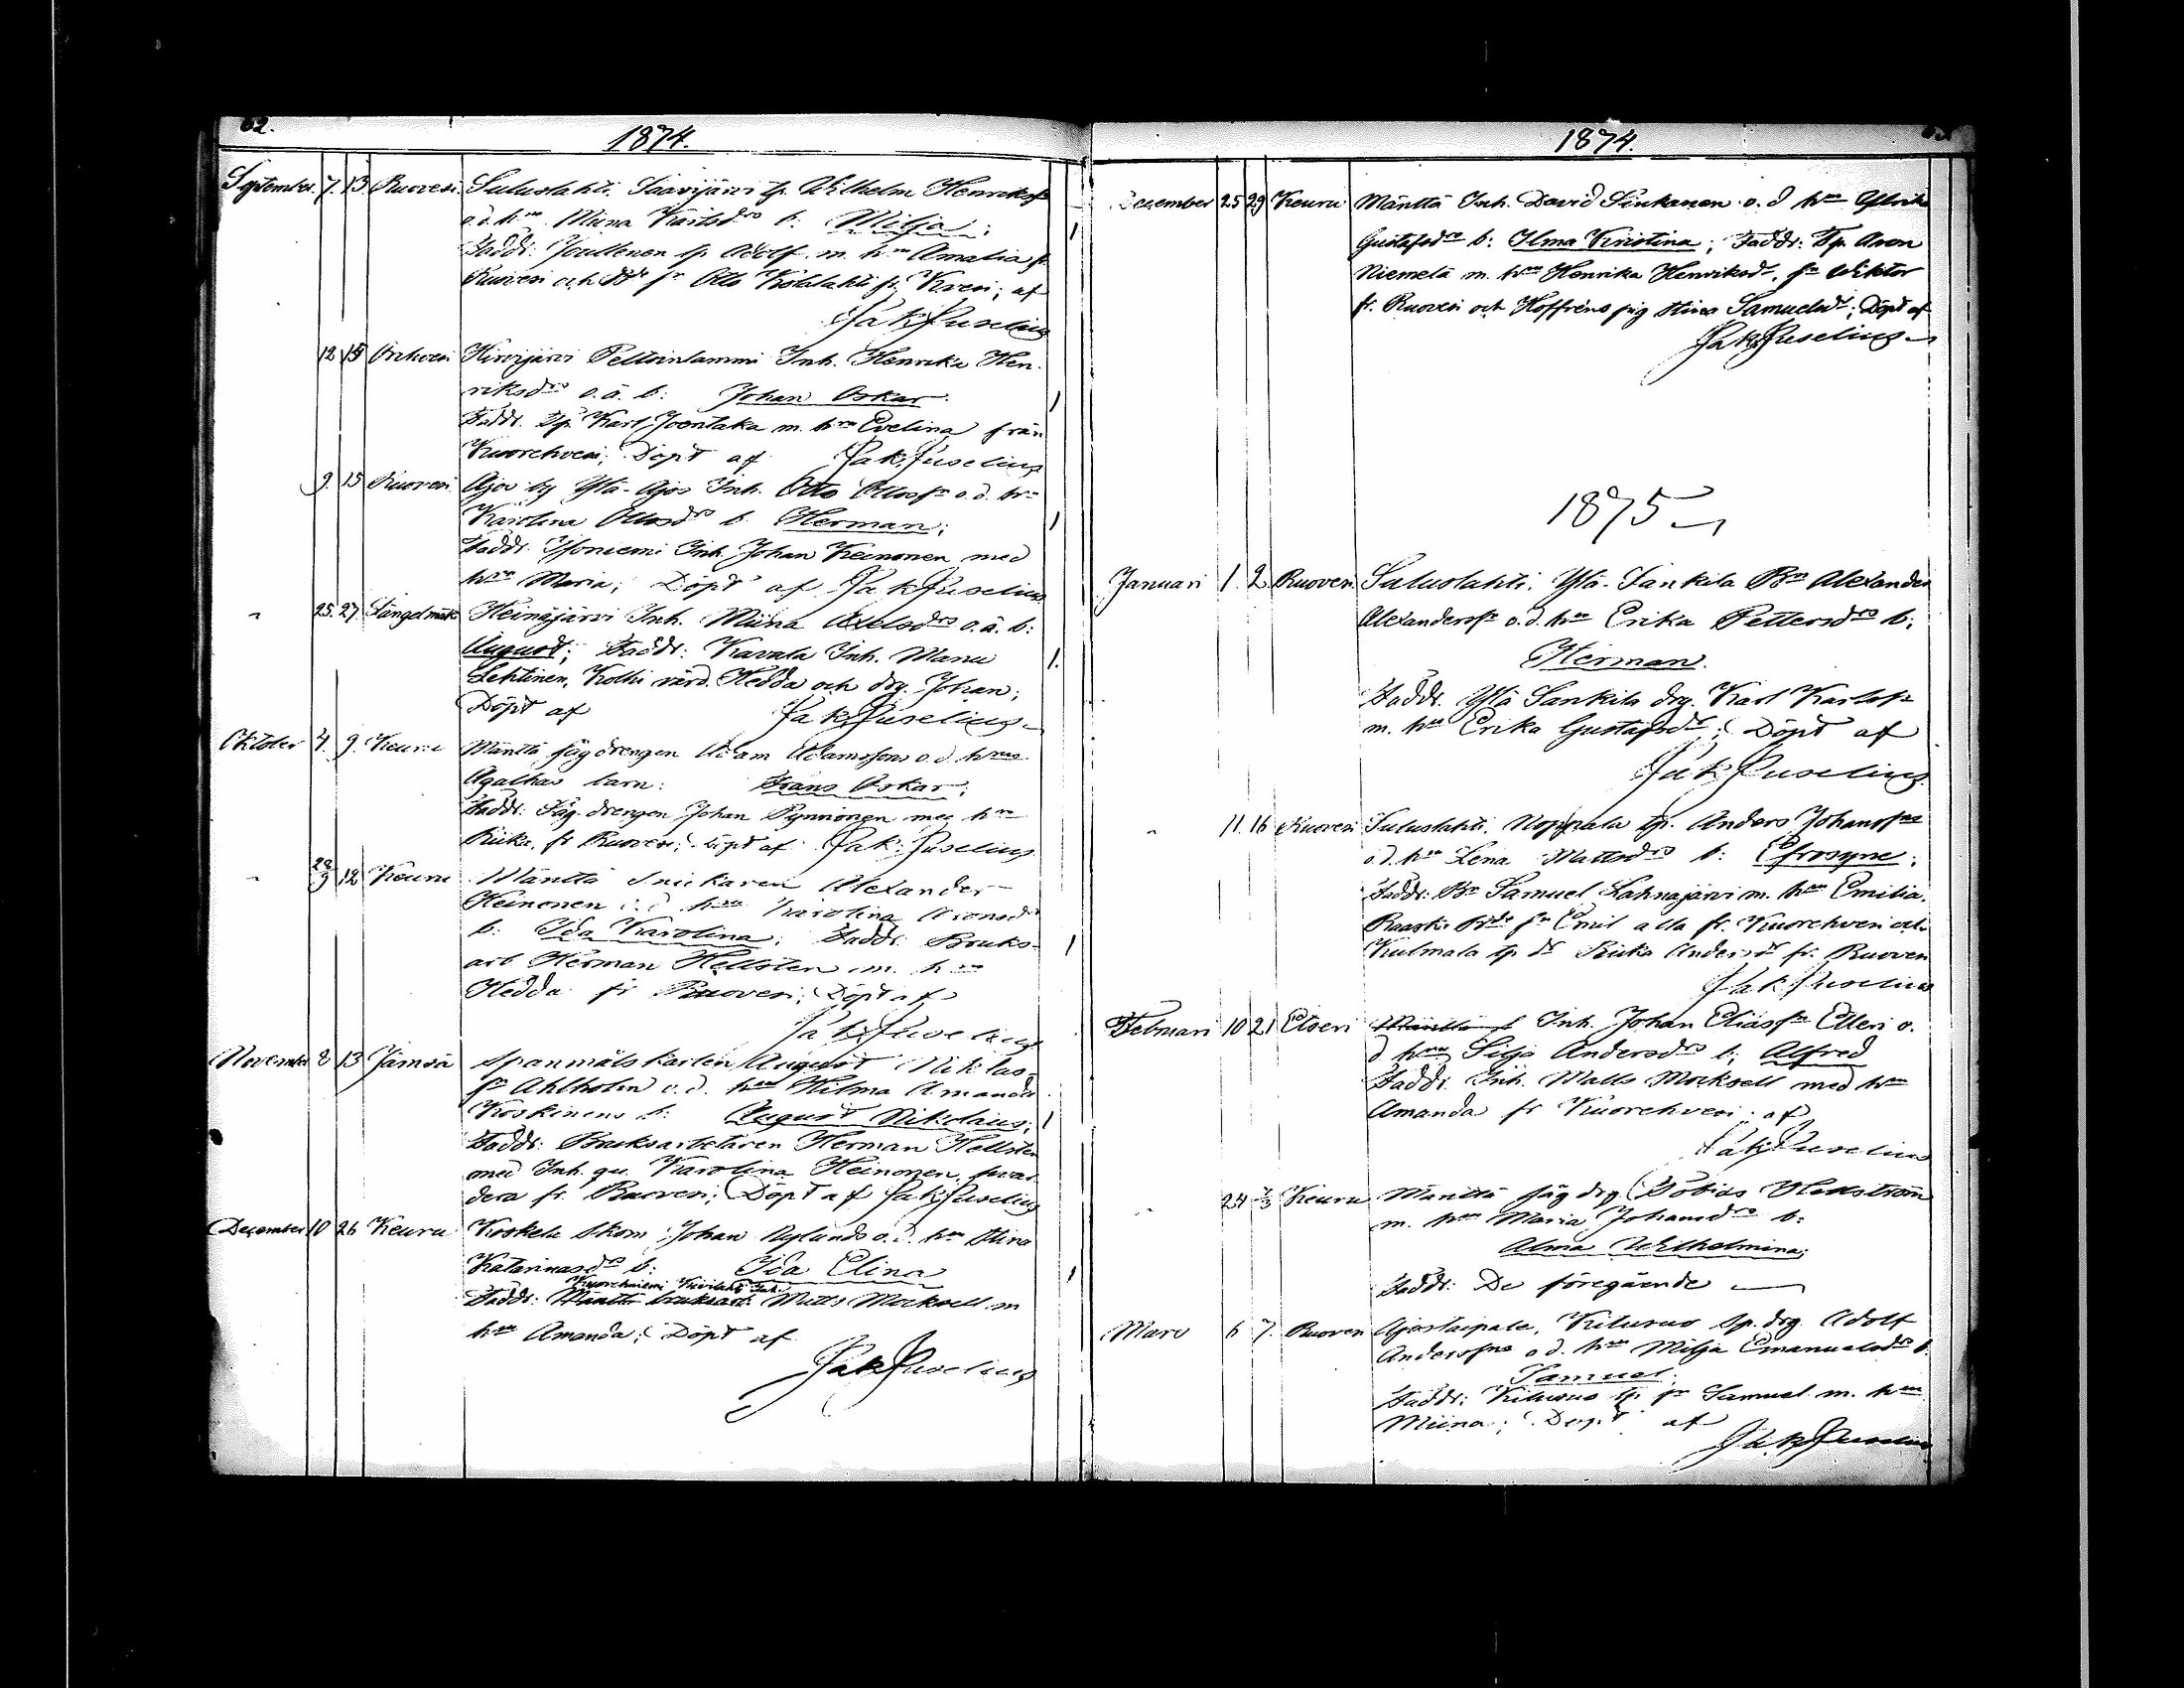 62.
1874.
September. 7. 13. Ruovesi. Suluslahti. Saarijärvi tp. Wilhelm Henriksson
o.d. hru Miina Karlsdrs b. Milja;
Faddr: Joullenen tp. Adolf m. hru Amalia fr
Ruovesi och Bde sn Otto Kolalahti fr. Kvesi; af
Jak. Juselius
12 15 Orihvesi Hirvijärvi Peltoinlammi Inh. Henrika Hen-
riksdrs o.ä. b: Johan Oskar.
Faddr. Tp. Karl Joentaka m. hru Evelina från
Kuorehvesi; Döpt af Jak. Juselius
9. 15 Ruovesi. Ajos by Ylä-Ajos Inh. Otto Ottossn o.d. hru
Karolina Ottosdrs b. Herman;
Faddr. Isoniemi Inh. Johan Keinonen med
hru Maria; Döpt af Jak Juselius
" 25. 27. Längelmäki Heinäjärvi Inh. Miina Axelsdrs o.ä. b:
August; Faddr: Kavala Inh. Manu
Lehtinen, Kolhi värd. Hedda och drg. Johan;
Döpt af Jak. Juselius
Oktober 4. 9. Keuru Mänttä sågdrengen Adam Adamssons o.d. hrus
Agathas barn: Frans Oskar;
Faddr: Såg-drengen Johan Pynnönen med hru
Riika, fr Ruovesi; Döpt af Jak. Juselius
" 28/9 12 Keuru Mänttä Snickaren Alexander
Heinonen o.d. hru Karolina Aronsdrs
b: Ida Karolina; Faddr: Bruks-
arb Herman Hellsten m. hru
Hedda fr Ruovesi; Döpt af
Jak. Juselius
November 8 13 Jämsä Spanmålskarlen August Niklas-
sn Ahlholm o.d. hru Hilma Amanda
Koskinens b: August Nikolaus;
Faddr: Bruksarbetaren Herman Hellsten
med Inh. qu. Karolina Heinonen, hvar
dera fr. Ruovesi; Döpt af Jak. Juselius
December 10 26 Keuru Koskela Skom. Johan Nylunds o.d. hru Stina
Katarinasdrs b: Ida Elina
Kuorehniemi Kivilahti Inh.
Faddr: Mänttä bruksarb. Matts Mocksell m
hru Amanda; Döpt af
Jak Juselius
1874.
December 25 29 Keuru Mänttä Inh. David Sinkanen o.d hru Ulrika
Gustafsdrs b: Ilma Kristina; Faddr: Tp. Aron
Niemelä m. hru Henrika Henriksdr, sn Wiktor
fr. Ruovesi och Hoffréns pig Stina Samuelsdr; Döpt af
Jak. Juselius
1875
Januari 1. 2 Ruovesi Suluslahti. Ylä-Sankila Bn Alexander
Alexanderssn o.d. hru Erika Pettersdrs b:
Herman.
Faddr. Ylä Sankila drg. Karl Karlssn
m. hru Erika Gustafsdr; Döpt af
Jak Juselius
" 11. 16 Ruovesi Suluslahti. Noppala tp. Anders Johanssns
o.d. hru Lena Mattsdrs b: Efrosyne;
Faddr: Bn Samuel Lahnajärvi m. hru Emilia,
Raaski Bde sn Emil alla fr. Kuorehvesi och
Kulmala tp dr Riika Andersdr fr. Ruovesi
Jak Juselius
Februari 10 21 Etseri Mänttä Inh. Johan Eliassn Elleri o.
d hru Silja Andersdrs b; Alfred
Faddr. Inh. Matts Mocksell med hru
Amanda fr Kuorehvesi af
Jak Juselius
" 24 7/3 Keuru Mänttä såg drg Tobias Hellström
m. hru Maria Johansdrs b:
Alma Wilhelmina;
Faddr: De föregående
Mars 6 7. Ruovesi Ajostaipale, Kilusuo tp. drg. Adolf
Anderssns o.d. hru Milja Emanuelsdrs b.
Samuel;
Faddr: Kilusuo tp. sn Samuel m. hru
Miina; Döpt af
Jak Juselius